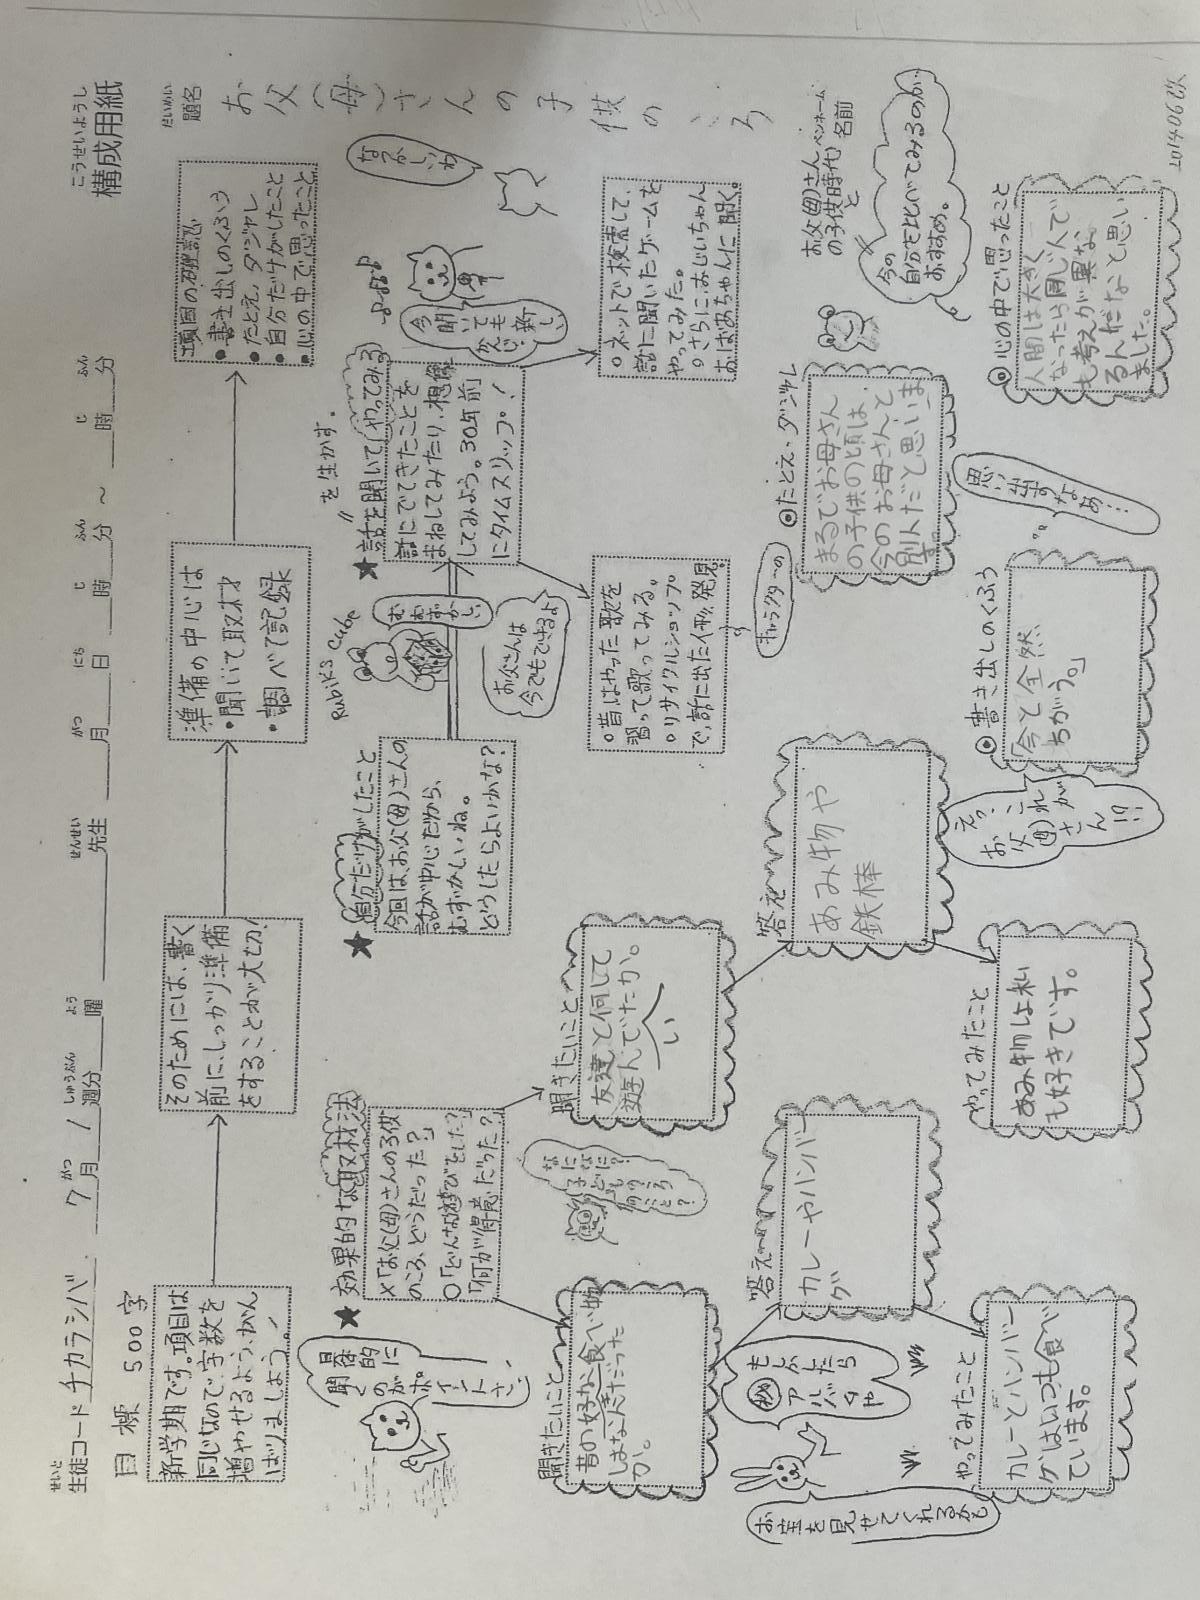 こうせいようし
構成用紙
だいめい
題名
お父(母)さんの子供のころ
せいと
生徒コード チカラシバ
がつ しゅうぶん よう せんせい がつ にち じ ふん じ ふん
7月 1 週分 曜 先生 月 日 時 分 ～ 時 分
目標 500字
新学期です。項目は
同じなので、字数を
増やせるよう、がん
ばりましょう。
そのためには、書く
前に、しっかり準備
をすることが大切。
準備の中心は
・聞いて取材
・調べて記録
項目の確認
・書き出しのくふう
・たとえ、ダジャレ
・自分だけがしたこと
・心の中で思ったこと
★効果的な取材法
×「お父(母)さんの子供
のころ、どうだった?」
○「どんな遊びをした?」
「何が得意だった?」
具体的に
聞く
のが
ポイント
さ!
なになに?
子ども
のころ
のこと?
★自分だけがしたこと
今回は、お父(母)さんの
話が中心だから、
むずかしいね。
どうしたらよいかな?
Rubik's Cube
むむ
むずかしい
お父さんは
今でもできるよ
を生かす。
★話を聞いて(やってみる
話にでてきたことを
まねしてみたり、想像
してみよう。30年前
にタイムスリップ!
今聞
いても
新しい
かんじ
なつかしいわ
○昔はやった歌を
習って歌ってみる。
○リサイクルショップ
で、話に出た物発見。
○ネットで検索して、
話に聞いたゲームを
やってみた。
○さらに、おじいちゃん
おばあちゃんに聞く。
聞きたいこと
昔の好きな食べ物
はなんだった
か。
答え
カレーやハンバー
グ
やってみたこと
カレーとハンバー
グはいつも食べ
ています。
もしかしたら
㊙
アルバムや
お宝を見せてくれるかも
聞きたいこと
友達と何して
遊んでたか。
い
答え
あみ物や
鉄棒
やってみたこと
あみ物は私
も好きです。
お父(母)さん
の子供時代
と
ペンネーム
名前
今の
自分を比べてみるのが
おすすめ。
◎書き出しのくふう
「今と全然
ちがう。」
えっ、
これが
お父(母)
さん!?
思い出すなあ…
キャラクターの
◎たとえ、ダジャレ
まるでお母さん
の子供の頃は、
今のお母さんと
別人だと思いま
す。
◎心の中で思ったこと
人間は大きく
なったら同じ人で
も考えが異な
るんだなと思い
ました。
201406改